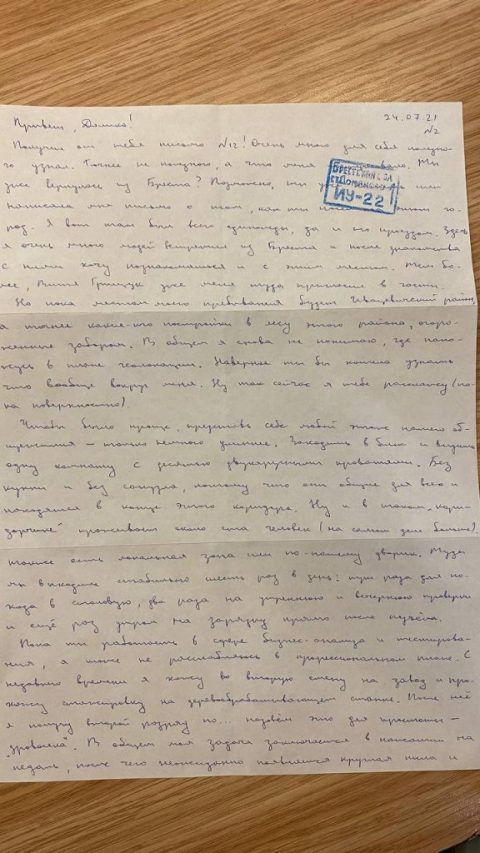 Привет, Демида!
24.07.21
N2
Получил от тебя письмо N12! Очень много для себя нового
узнал. Точнее не нового, а что меня Ты
уже вернулась из Бреста? Возможно, ты уже
написала мне письмо о том, как ты этот го-
род. Я вот там был всего единожды, да и то проездом. Здесь
я очень много людей встретил из Бреста и после знакомства
с ними хочу познакомиться и с этим местом. Тем бо-
лее, Витя Гринчук уже меня туда пригласил в гости.
Но пока местом моего пребывания будет Ивацевичский район,
а точнее какие-то постройки в лесу этого района, огоро-
женные забором. В общем я снова не понимаю, где нахо-
жусь в плане геолокации. Наверное ты бы хотела узнать
что вообще вокруг меня. Ну так сейчас я тебе расскажу (по-
ка поверхностно)
Чтобы было проще, представь себе любой этаж нашего об-
щежития – только немного длиннее. Заходишь в блок и видишь
одну комнату с десятью двухъярусными кроватями. Без
кухни и без санузла, потому что они общие для всех и
находятся в конце этого коридора. Ну и в таком „кори-
дорчике" проживает около ста человек (на самом деле больше)
также есть локальная зона или по-нашему дворик. Туда
мы выходим стабильно шесть раз в день: три раза для по-
хода в столовую, два раза на утреннюю и вечернюю проверки
и ещё раз утром на зарядку прямо после подъёма.
Пока ты работаешь в сфере бизнес-анализа и тестирова-
ния, я тоже не расслабляюсь в профессиональном плане. С
недавнего времени я хожу во вторую смену на завод и про-
хожу стажировку на деревообрабатывающем станке. После неё
я получу второй разряд по... назовём это для простоты –
„дроворуба". В общем моя задача заключается в нажатии на
педаль, после чего неожиданно появляется круглая пила и
БРЕСТСКИЙ
ИУ-22